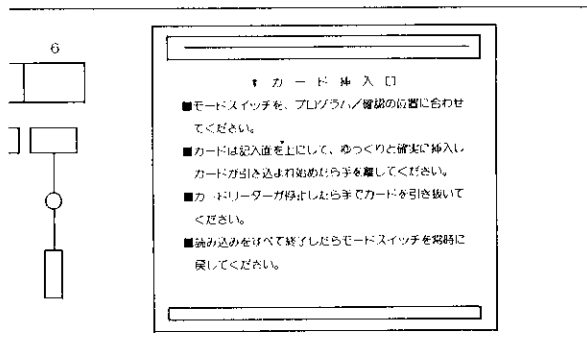 6
カード挿入口
■モードスイッチを、プログラム/確認の位置に合わせ
てください。
■カードは記入面を上にして、ゆっくりと確実に挿入し
カードが引き込まれ始めたら手を離してください。
■カードリーダーが停止したら手でカードを引き抜いて
ください。
■読み込みをすべて終了したらモードスイッチを常時に
戻してください。